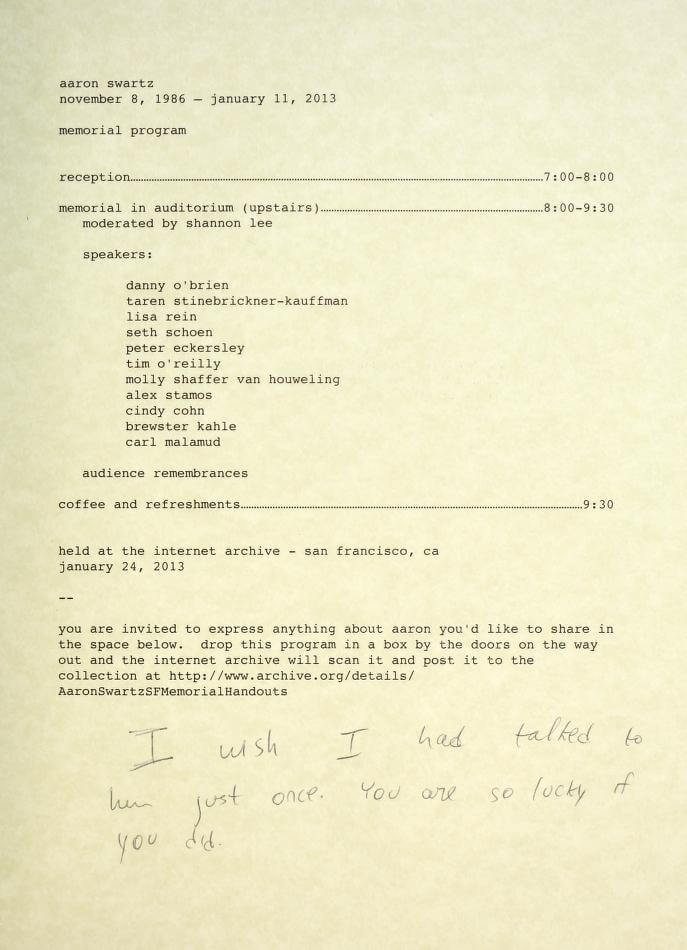 aaron swartz
november 8, 1986 – january 11, 2013
memorial program
reception........................7:00-8:00
memorial in auditorium (upstairs)........................8:00-9:30
moderated by shannon lee
speakers:
danny o'brien
taren stinebrickner-kauffman
lisa rein
seth schoen
peter eckersley
tim o'reilly
molly shaffer van houweling
alex stamos
cindy cohn
brewster kahle
carl malamud
audience remembrances
coffee and refreshments........................9:30
held at the internet archive - san francisco, ca
january 24, 2013
--
you are invited to express anything about aaron you'd like to share in
the space below.  drop this program in a box by the doors on the way
out and the internet archive will scan it and post it to the
collection at http://www.archive.org/details/
AaronSwartzSFMemorialHandouts
I wish I had talked to
him just once. You are so lucky if
you did.